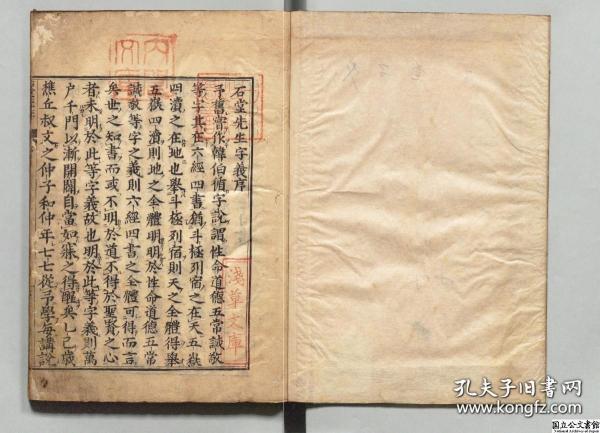 石堂先生字義序
予舊嘗作韓伯循字說謂性命道德五常誠敬
等字其在六經四書猶斗極列宿之在天五嶽
四瀆之在地也舉斗極列宿則天之全體得舉
五嶽四瀆則地之全體明明於性命道德五常
誠敬等字之義則六經四書之全體可得而言
矣世之知書而或不明於道不得於聖賢之心
者未明於此等字義故也明於此等字義則萬
户千門以漸開闢自當如寐之得醒矣乙己歲
樵丘叔文之仲子和仲年七七從予學每講說
淺草文庫
孔夫子旧书网
www.kongfz.com
国立公文書館
National Archives of Japan